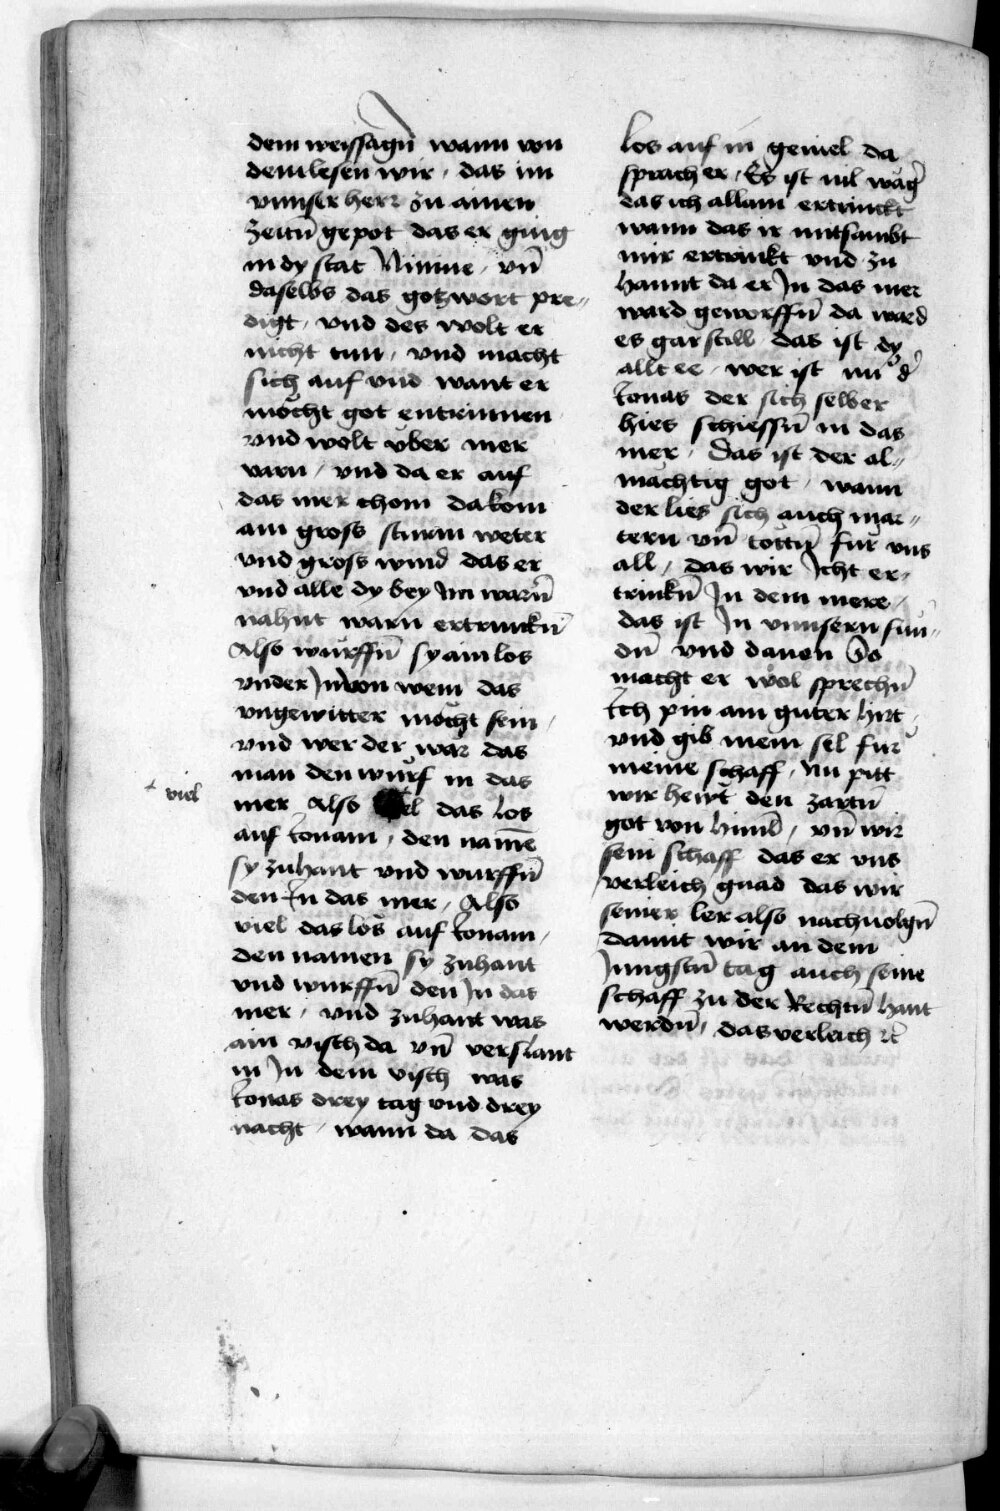 dem weissagn̄ wann von
dem lesen wir / das im
vnnser herr zu ainen
zeitn̄ gepot das er ging
in dy stat Niniue / vn̄
daselbs das gotzwort pre=
digt / vnd des wolt er
nicht tun / vnd macht
sich auf vnd want er
möcht got entrinnen
vnd wolt vber mer
varn / vnd da er auf
das mer chom da kom
ain gross sturm weter
vnd gross wind das er
vnd alle dy bey Im warn̄
nahnt warn ertrunkn̄
Also würffn̄ sy ain los
vnder In von wem das
vngewitter möcht sein /
vnd wer der war das
man den würf in das
viel
mer Also das los
auf Jonam / den namē
sy zuhant vnd wurffn̄
den Jn das mer / Also
viel das los auf Jonam /
den namen sy zuhant
vnd wurffn̄ den Jn das
mer / vnd zuhant was
ain visch da vn̄ verslant
in Jn dem visch was
Jonas drey tag vnd drey
nacht / wann da das
los auf in geuiel da
sprach er / Es ist vil wäḡ
das ich allain ertrinckt
wann das ir mitsambt
mir ertrinkt vnd zu
hannt da er Jn das mer
ward geworffn̄ da ward
es gar still das ist dy
allt ee / wer ist nu d̄
Jonas der sich selber
hies schiessn̄ in das
mer / das ist der al=
mächtig got / wann
der lies sich auch mar=
tern vn̄ tottn̄ für vns
all / das wir Icht er=
trinkn̄ Jn dem mere /
das ist Jn vnnsern sun=
dn̄ vnd dauon So
macht er wöl sprechn̄
Ich pin ain guter hirt /
vnd gib mein sel für
meine schaff / Nu pitt
wir hewt den zartn̄
got von himl̄ / vn̄ wir
sein schaff das er vns
verleich gnad das wir
seiner ler also nachuolgn̄
damit wir an dem
Jungstn̄ tag auch seine
schaff zu der Rechtn̄ hant
werdn̄ / das verleich ꝛc̄